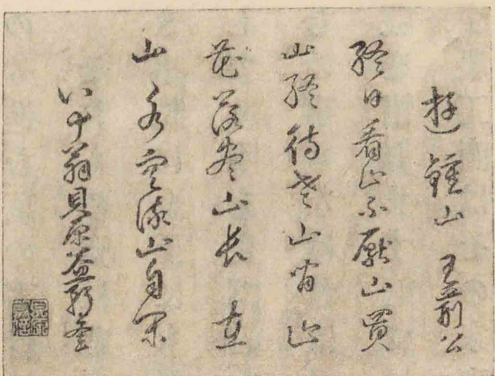 遊鍾山 王荊公
終日看山不厭山買
山終待老山間山
花落盡山長在
山水空流山自閑
八十翁貝原益軒書